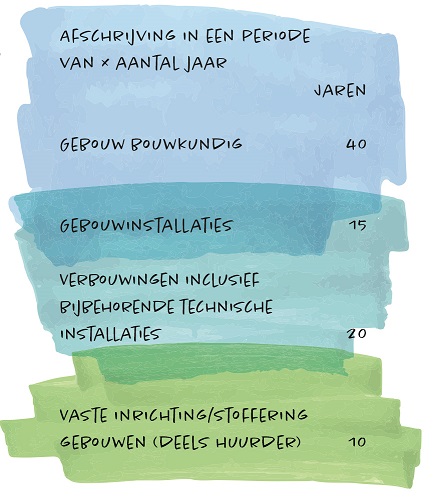 AFSCHRIJVING IN EEN PERIODE
VAN x AANTAL JAAR
JAREN
GEBOUW BOUWKUNDIG 40
GEBOUWINSTALLATIES 15
VERBOUWINGEN INCLUSIEF
BIJBEHORENDE TECHNISCHE
INSTALLATIES 20
VASTE INRICHTING/STOFFERING
GEBOUWEN (DEELS HUURDER) 10